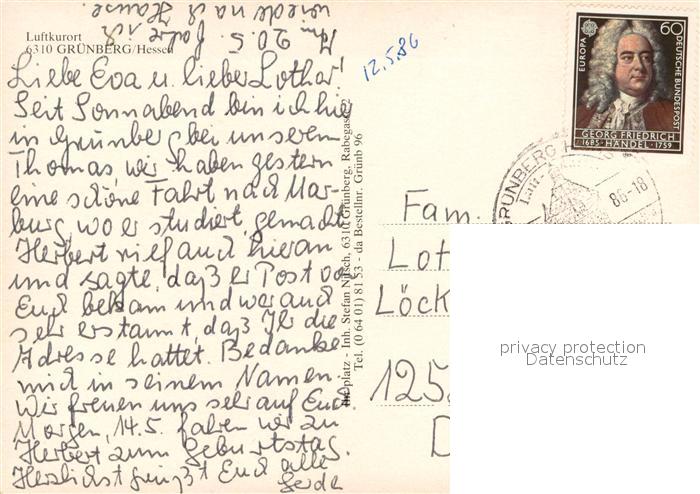 Luftkurort
6310 GRÜNBERG/Hessen
12.5.86
Liebe Eva u. lieber Lothar!
Seit Sonnabend bin ich hier
in Grünberg bei unserem
Thomas, wir haben gestern
eine schöne Fahrt nach Mar-
burg, wo er studiert, gemacht
Herbert rief auch hier an
und sagte, daß er Post von
Euch bekam und war auch
sehr erstaunt, daß Ihr die
Adresse hattet. Bedanke
mich in seinem Namen.
Wir freuen uns sehr auf Euch.
Morgen, 14.5. fahren wir zu
Herbert zum Geburtstag.
Herzlichst grüßt Euch alle
Gerda
Am 20.5. fahre ich
wieder nach Hause.
Bildplatz - Inh. Stefan Nitsch, 6310 Grünberg, Rabegasse
Tel. (0 64 01) 81 53 - da Bestellnr. Grünb 96
EUROPA
60
DEUTSCHE BUNDESPOST
GEORG FRIEDRICH
1685 · HÄNDEL · 1759
GRÜNBERG
86-18
Fam.
Lot
Löck
125
D
privacy protection
Datenschutz